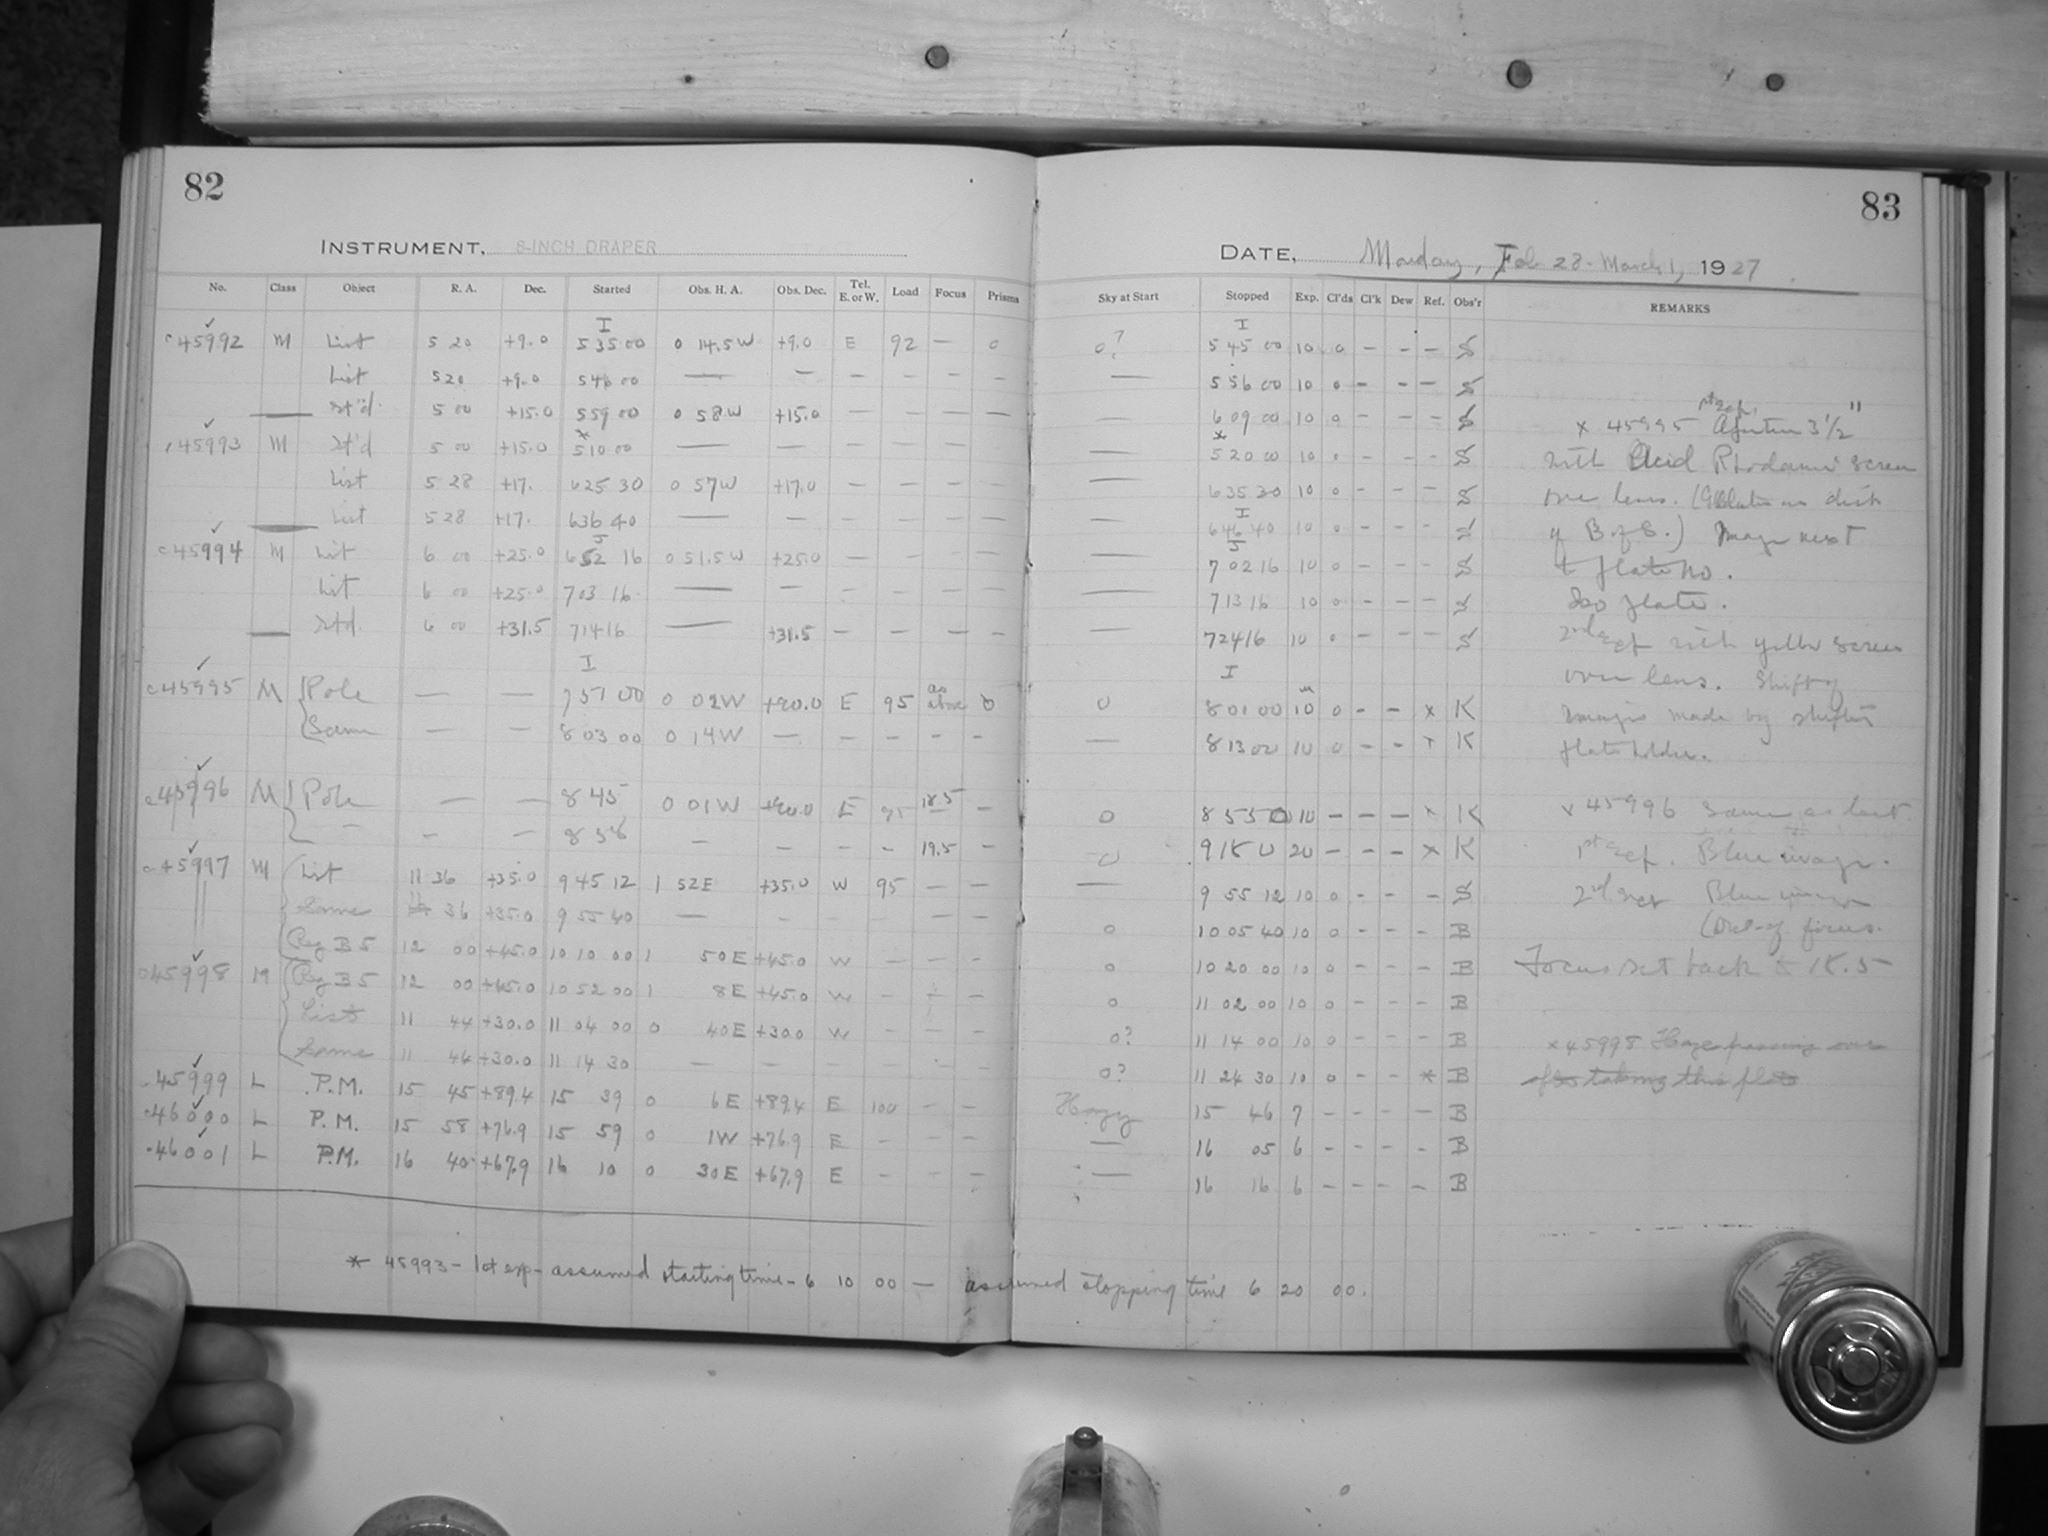 82
INSTRUMENT, 8-INCH DRAPER
No. Class Object R. A. Dec. Started Obs. H. A. Obs. Dec. Tel. E. or W. Load Focus Prisms
I
c45992 M List 5 20 +9.0 5 35 00 0 14.5 W +9.0 E 92 — 0
List 5 20 +9.0 5 46 00 — — — — — —
St'd. 5 00 +15.0 5 59 00 0 58 W +15.0 — — — —
*
c45993 M St'd 5 00 +15.0 5 10 00 — — — — — —
List 5 28 +17. 6 25 30 0 57 W +17.0 — — — —
List 5 28 +17. 6 36 40 — — — — — —
J
c45994 M List 6 00 +25.0 6 52 16 0 51.5 W +25.0 — — — —
List 6 00 +25.0 7 03 16 — — — — — —
Std. 6 00 +31.5 7 14 16 — +31.5 — — — —
I
c45995 M Pole — — 7 51 00 0 02 W +90.0 E 95 as above 0
Same — — 8 03 00 0 14 W — — — — —
c45996 M Pole — — 8 45 0 01 W +90.0 E 95 18.5 —
— — — 8 58 — — — — 19.5 —
c45997 M List 11 36 +35.0 9 45 12 1 52 E +35.0 W 95 — —
Same 11 36 +35.0 9 55 40 — — — — — —
Reg B 5 12 00 +45.0 10 10 00 1 50 E +45.0 W — — —
c45998 M Reg B 5 12 00 +45.0 10 52 00 1 8 E +45.0 W — — —
List 11 44 +30.0 11 04 00 0 40 E +30.0 W — — —
Same 11 44 +30.0 11 14 30 — — — — — —
45999 L P.M. 15 45 +89.4 15 39 0 6 E +89.4 E 100 — —
46000 L P.M. 15 58 +76.9 15 59 0 1 W +76.9 E — — —
46001 L P.M. 16 40 +67.9 16 10 0 30 E +67.9 E — — —
* 45993 – 1st exp – assumed starting time – 6 10 00 — assumed stopping time 6 20 00.
83
DATE, Monday, Feb 28 - March 1, 1927
Sky at Start Stopped Exp. Cl'ds Cl'k Dew Ref. Obs'r REMARKS
I
0? 5 45 00 10 0 – – – S
— 5 56 00 10 0 – – – S
— 6 09 00 10 0 – – – S
*
— 5 20 00 10 0 – – – S
— 6 35 30 10 0 – – – S
I
— 6 46 40 10 0 – – – S
J
— 7 02 16 10 0 – – – S
— 7 13 16 10 0 – – – S
— 7 24 16 10 0 – – – S
I
0 8 01 00 10 m 0 – – x K
— 8 13 00 10 0 – – x K
0 8 55 0 10 – – – x K
0 9 18 0 20 – – – x K
— 9 55 12 10 0 – – – S
0 10 05 40 10 0 – – – B
0 10 20 00 10 0 – – – B
0 11 02 00 10 0 – – – B
0? 11 14 00 10 0 – – – B
0? 11 24 30 10 0 – – * B
Hazy 15 46 7 – – – – B
— 16 05 6 – – – – B
— 16 16 6 – – – – B
x 45995 1st exp. Aperture 3 1/2"
with Acid Rhodamine screen
over lens. disk
of B. of S.) Image next
to plate no.
Iso plate.
2nd exp with yellow screen
over lens. Shift of
images made by shifting
plateholder.
x 45996 Same as last.
1st exp. Blue image.
2nd exp Blue image
Out of focus.
Focus set back to 18.5
x 45998 Haze passing over
after taking this plate